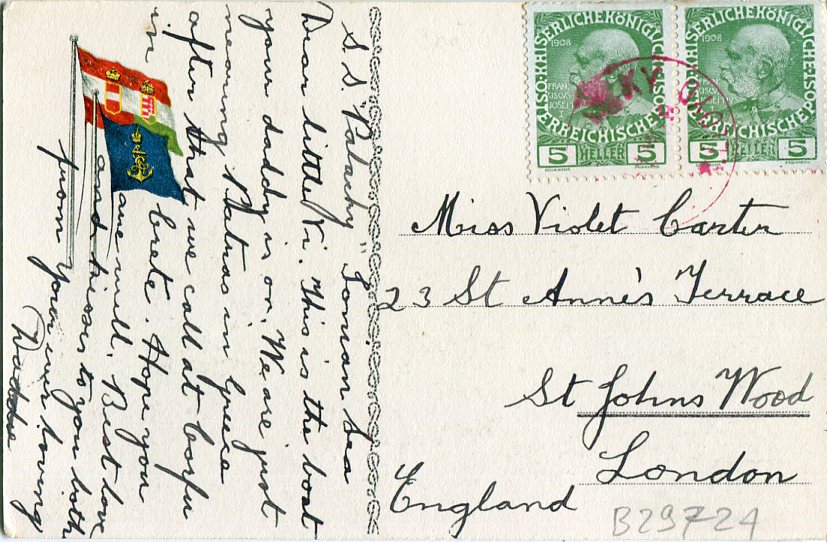 S.S. "Palacky" Ionian Sea
Dear little Vi. This is the boat
your daddy is on. We are just
nearing Patras in Greece
after that we call at Corfu
in Crete. Hope you
are well. Best love
and kisses to you both
from your ever loving
Daddie
KAISERLICHE KÖNIGLICHE
ÖSTERREICHISCHE POST
1908
FRAN
CISCVS
JOSEF I
5 HELLER 5
KAISERLICHE KÖNIGLICHE
ÖSTERREICHISCHE POST
1908
FRAN
CISCVS
JOSEF I
5 HELLER 5
Miss Violet Carter
23 St Anne's Terrace
St Johns Wood
London
England
B29724